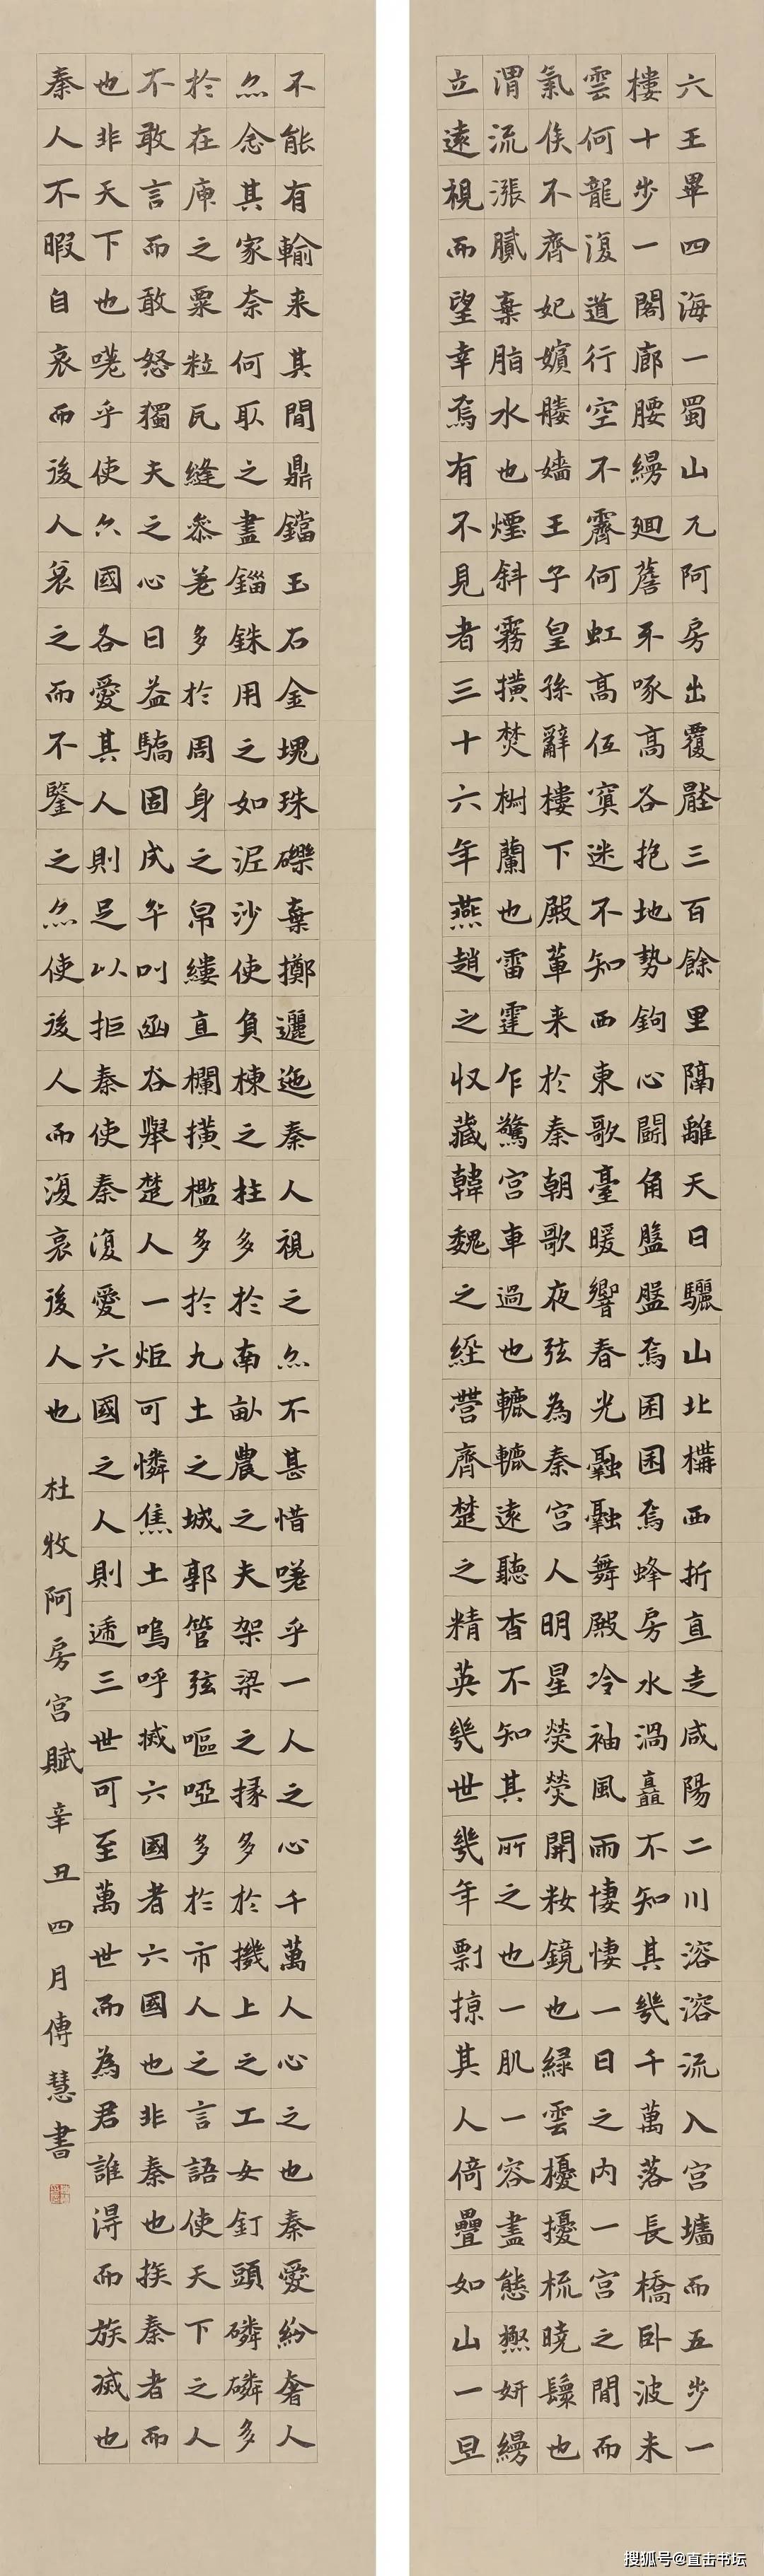 六王畢四海一蜀山兀阿房出覆壓三百餘里隔離天日驪山北構西折直走咸陽二川溶溶流入宮墻而五步一
樓十步一閣廊腰縵廻簷牙啄高各抱地勢鉤心鬭角盤盤焉囷囷焉蜂房水渦矗不知其幾千萬落長橋卧波未
雲何龍復道行空不霽何虹高低冥迷不知西東歌臺暖響春光融融舞殿冷袖風雨悽悽一日之内一宮之間而
氣候不齊妃嬪媵嬙王子皇孫辭樓下殿輦来於秦朝歌夜弦為秦宮人明星熒熒開妝鏡也緑雲擾擾梳曉鬟也
渭流漲膩棄脂水也煙斜霧橫焚椒蘭也雷霆乍驚宮車過也轆轆遠聽杳不知其所之也一肌一容盡態極妍縵
立遠視而望幸焉有不見者三十六年燕趙之收藏韓魏之經營齊楚之精英幾世幾年剽掠其人倚疊如山一旦
不能有輸来其間鼎鐺玉石金塊珠礫棄擲邐迤秦人視之亦不甚惜嗟乎一人之心千萬人心之也秦愛紛奢人
亦念其家奈何取之盡錙銖用之如泥沙使負棟之柱多於南畝農之夫架梁之椽多於機上之工女釘頭磷磷多
於在庾之粟粒瓦縫參差多於周身之帛縷直欄橫檻多於九土之城郭管弦嘔啞多於市人之言語使天下之人
不敢言而敢怒獨夫之心日益驕固戍卒叫函谷舉楚人一炬可憐焦土嗚呼滅六國者六國也非秦也族秦者而
也非天下也嗟乎使六國各愛其人則足以拒秦使秦復愛六國之人則遞三世可至萬世而為君誰得而族滅也
秦人不暇自哀而後人哀之而不鑒之亦使後人而復哀後人也 杜牧阿房宮賦辛丑四月傅慧書
搜狐号@直击书坛